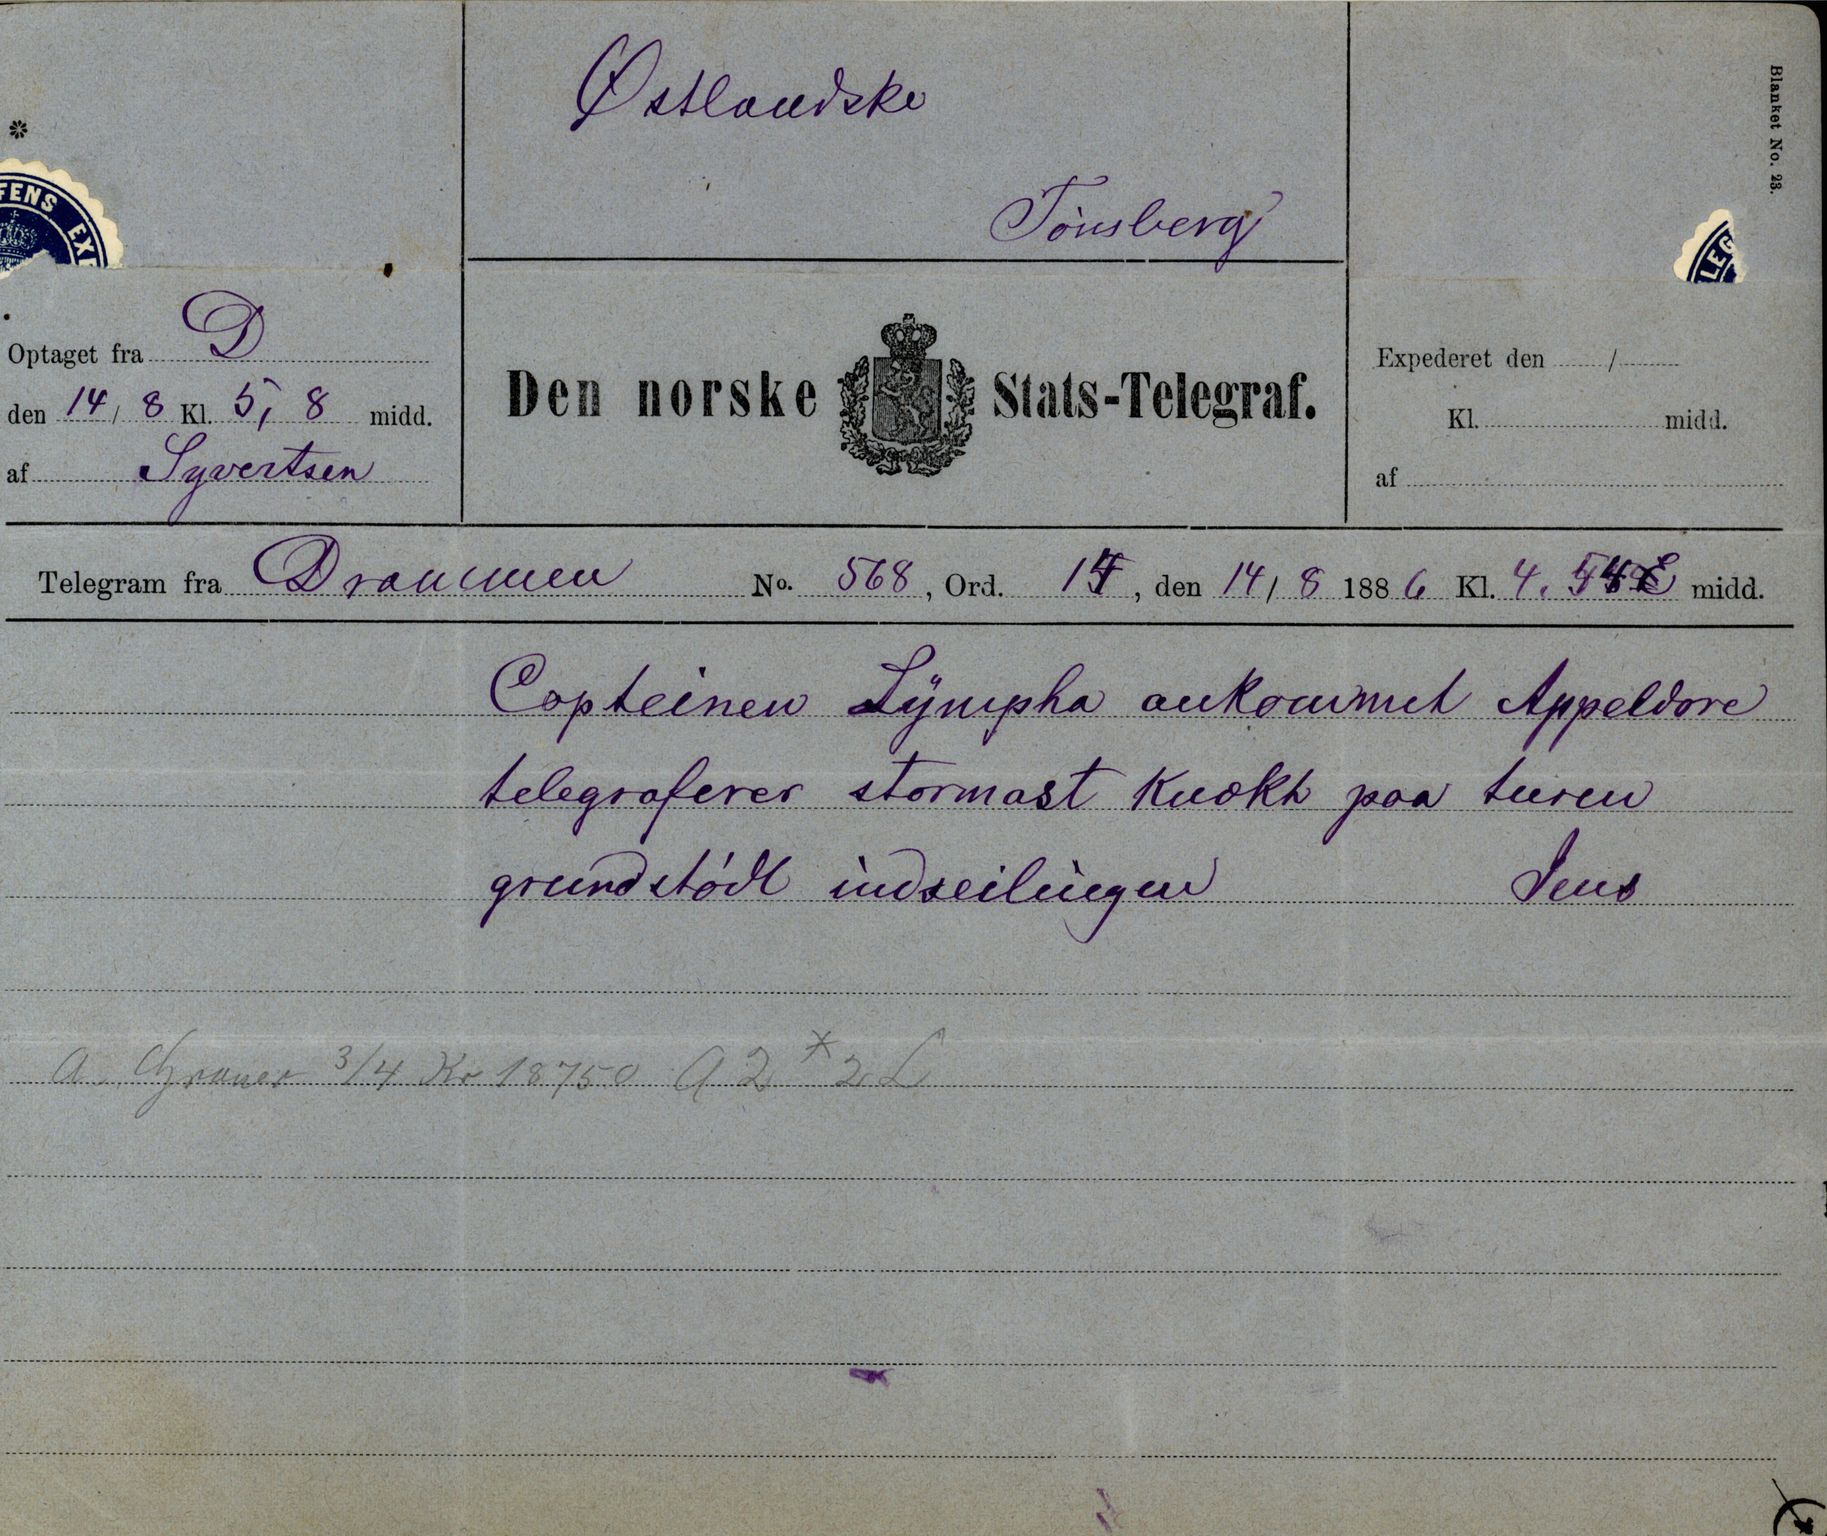 Østlandske
Tønsberg
Blanket No. 23.
FENS EXP
LEG
Optaget fra D
den 14/8 Kl. 5,8 midd.
af Syvertsen
Den norske Stats-Telegraf.
Expederet den /
Kl. midd.
af
Telegram fra Drammen No. 568, Ord. 14, den 14/8 1886 Kl. 4. midd.
Copteinen Lÿmpha ankommet Appeldore
telegraferer stormast knækt paa turen
grundstødt indseilingen Jens
A. 3/4 Kr 18750 A 2 * 2 L